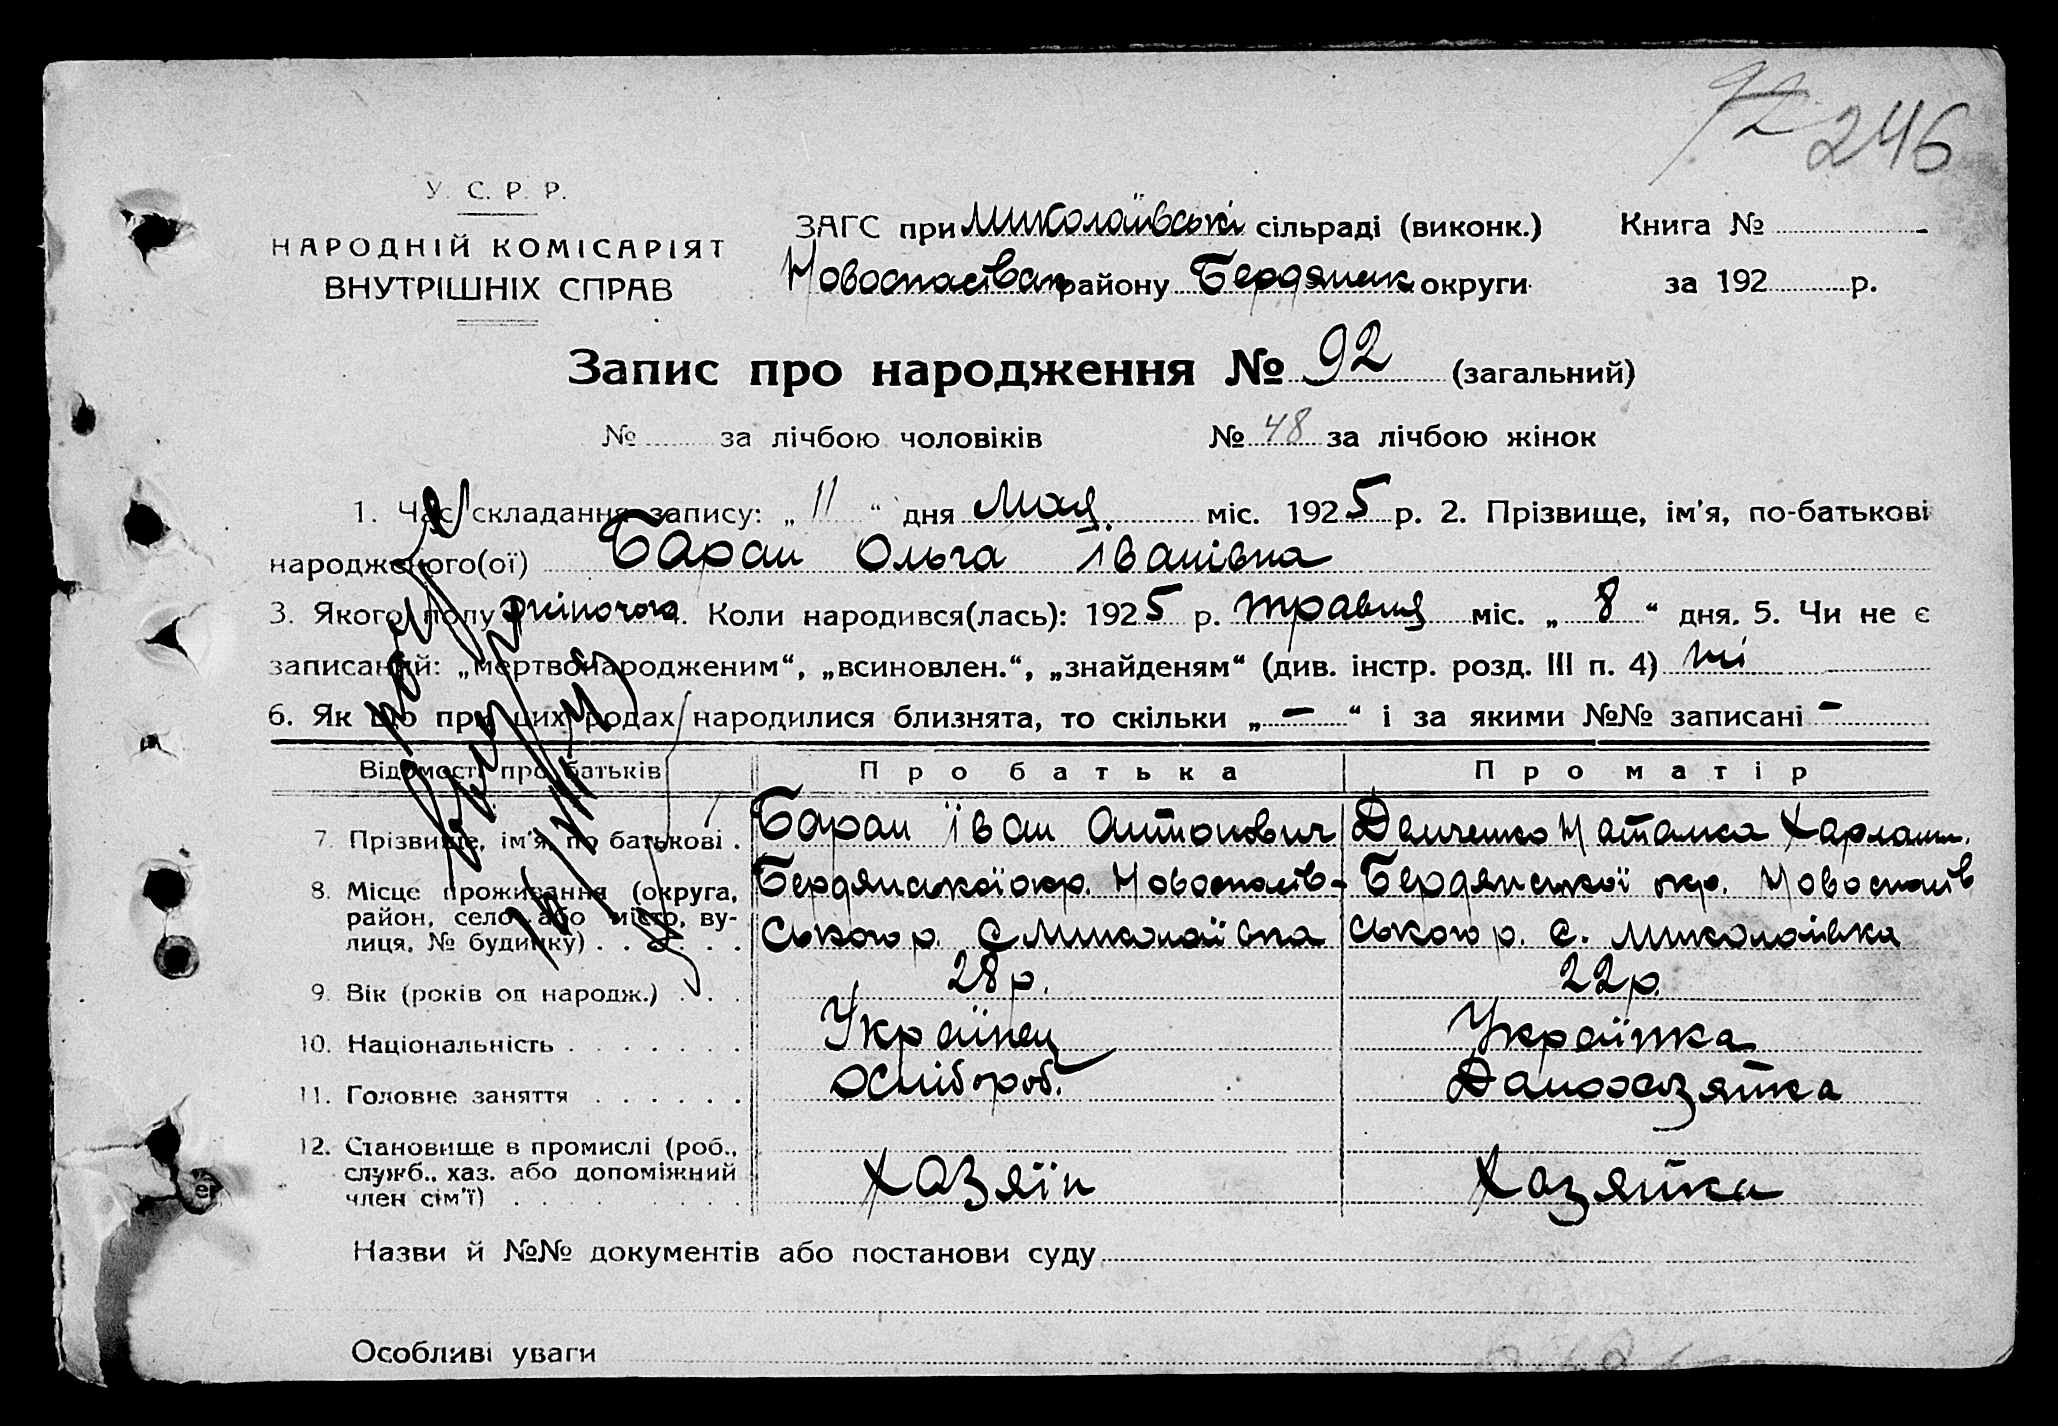 92 246
У. С. Р. Р.
НАРОДНІЙ КОМІСАРІЯТ
ВНУТРІШНІХ СПРАВ
ЗАГС при Миколаївські сільраді (виконк.)
Новоспасівск району Бердянськ округи
Книга №
за 192 р.
Запис про народження № 92 (загальний)
№ за лічбою чоловіків № 48 за лічбою жінок
1. Час складання запису: „ 11 “ дня мая міс. 1925 р. 2. Прізвище, ім'я, по-батькові
народженого(ої) Баран Ольга Іванівна
3. Якого полу жіночого. Коли народився(лась): 1925 р. травня міс. „ 8 “ дня. 5. Чи не є
записаний: „мертвонародженим“, „всиновлен.“, „знайденям“ (див. інстр. розд. III п. 4) ні
6. Як що при цих родах народилися близнята, то скільки „ – “ і за якими №№ записані –
Відомості про батьків Про батька Про матір
7. Прізвище, ім'я, по батькові . Баран Іван Антонович Демченко Наталка Харламп.
8. Місце проживання (округа, Бердянської окр. Новоспасів- Бердянської окр. Новоспасів
район, село або місто, ву- ського р. с. Миколаївка ського р. с. Миколаївка
лиця, № будинку) . . . . .
9. Вік (років од народж.) . . . 28 р. 22 р.
10. Національність . . . . . . . Українец Українка
11. Головне заняття . . . . . . Хлібороб. Домохазяйка
12. Становище в промислі (роб.,
служб., хаз. або допоміжний Хазяїн Хазяйка
член сім'ї) . . . . . . . .
Назви й №№ документів або постанови суду
Особливі уваги